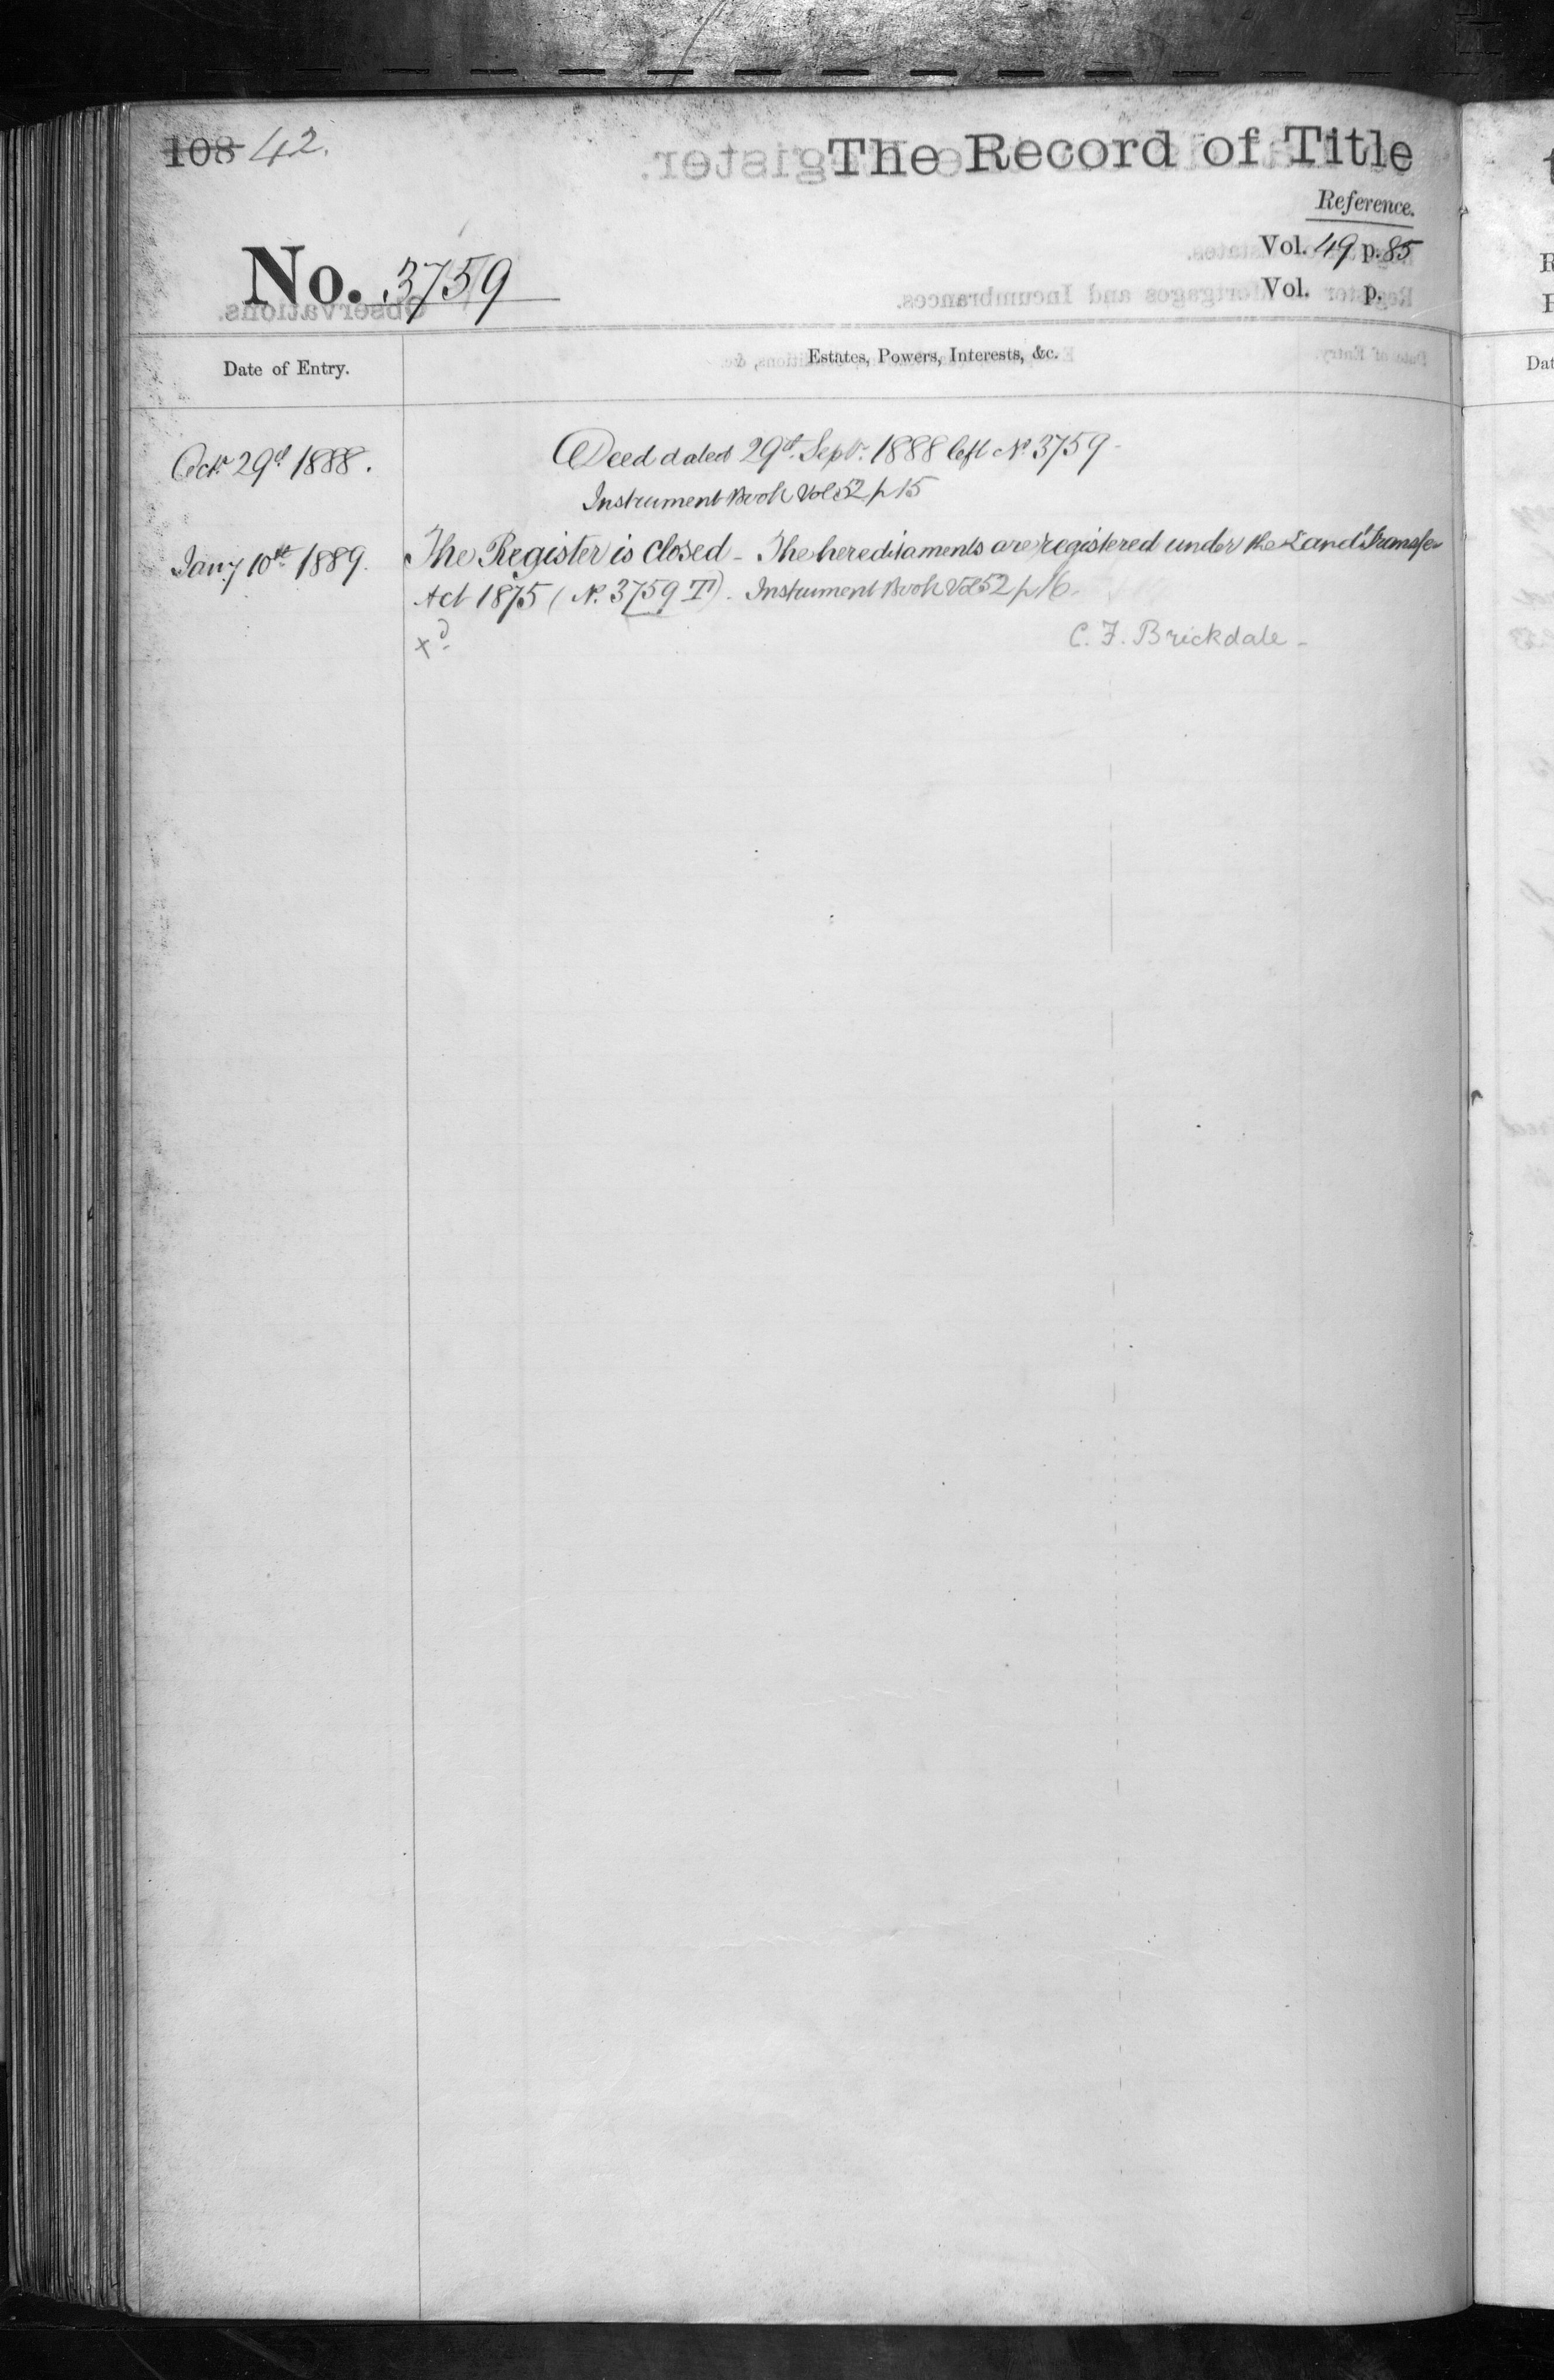 108 42.
The Record of Title
Reference.
Vol. 49 p. 85
No. 3759
Vol. p.
Date of Entry.
Estates, Powers, Interests, &c.
Octr 29th 1888.
Deed dated 29th Septr. 1888 left No 3759
Instrument Book Vol 52 p 15
Jany 10th 1889.
The Register is Closed - The hereditaments are registered under the Land Transfer
Act 1875 (No. 3759 T). Instrument Book Vol 52 p 16.
xd
C. F. Brickdale -